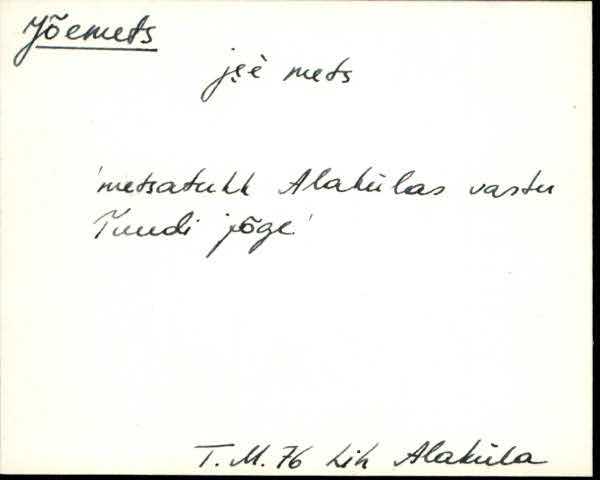 Jõemets
jẹè mets
'metsatukk Alakülas vastu
Tuudi jõge'
T. M. 76 Lih Alaküla